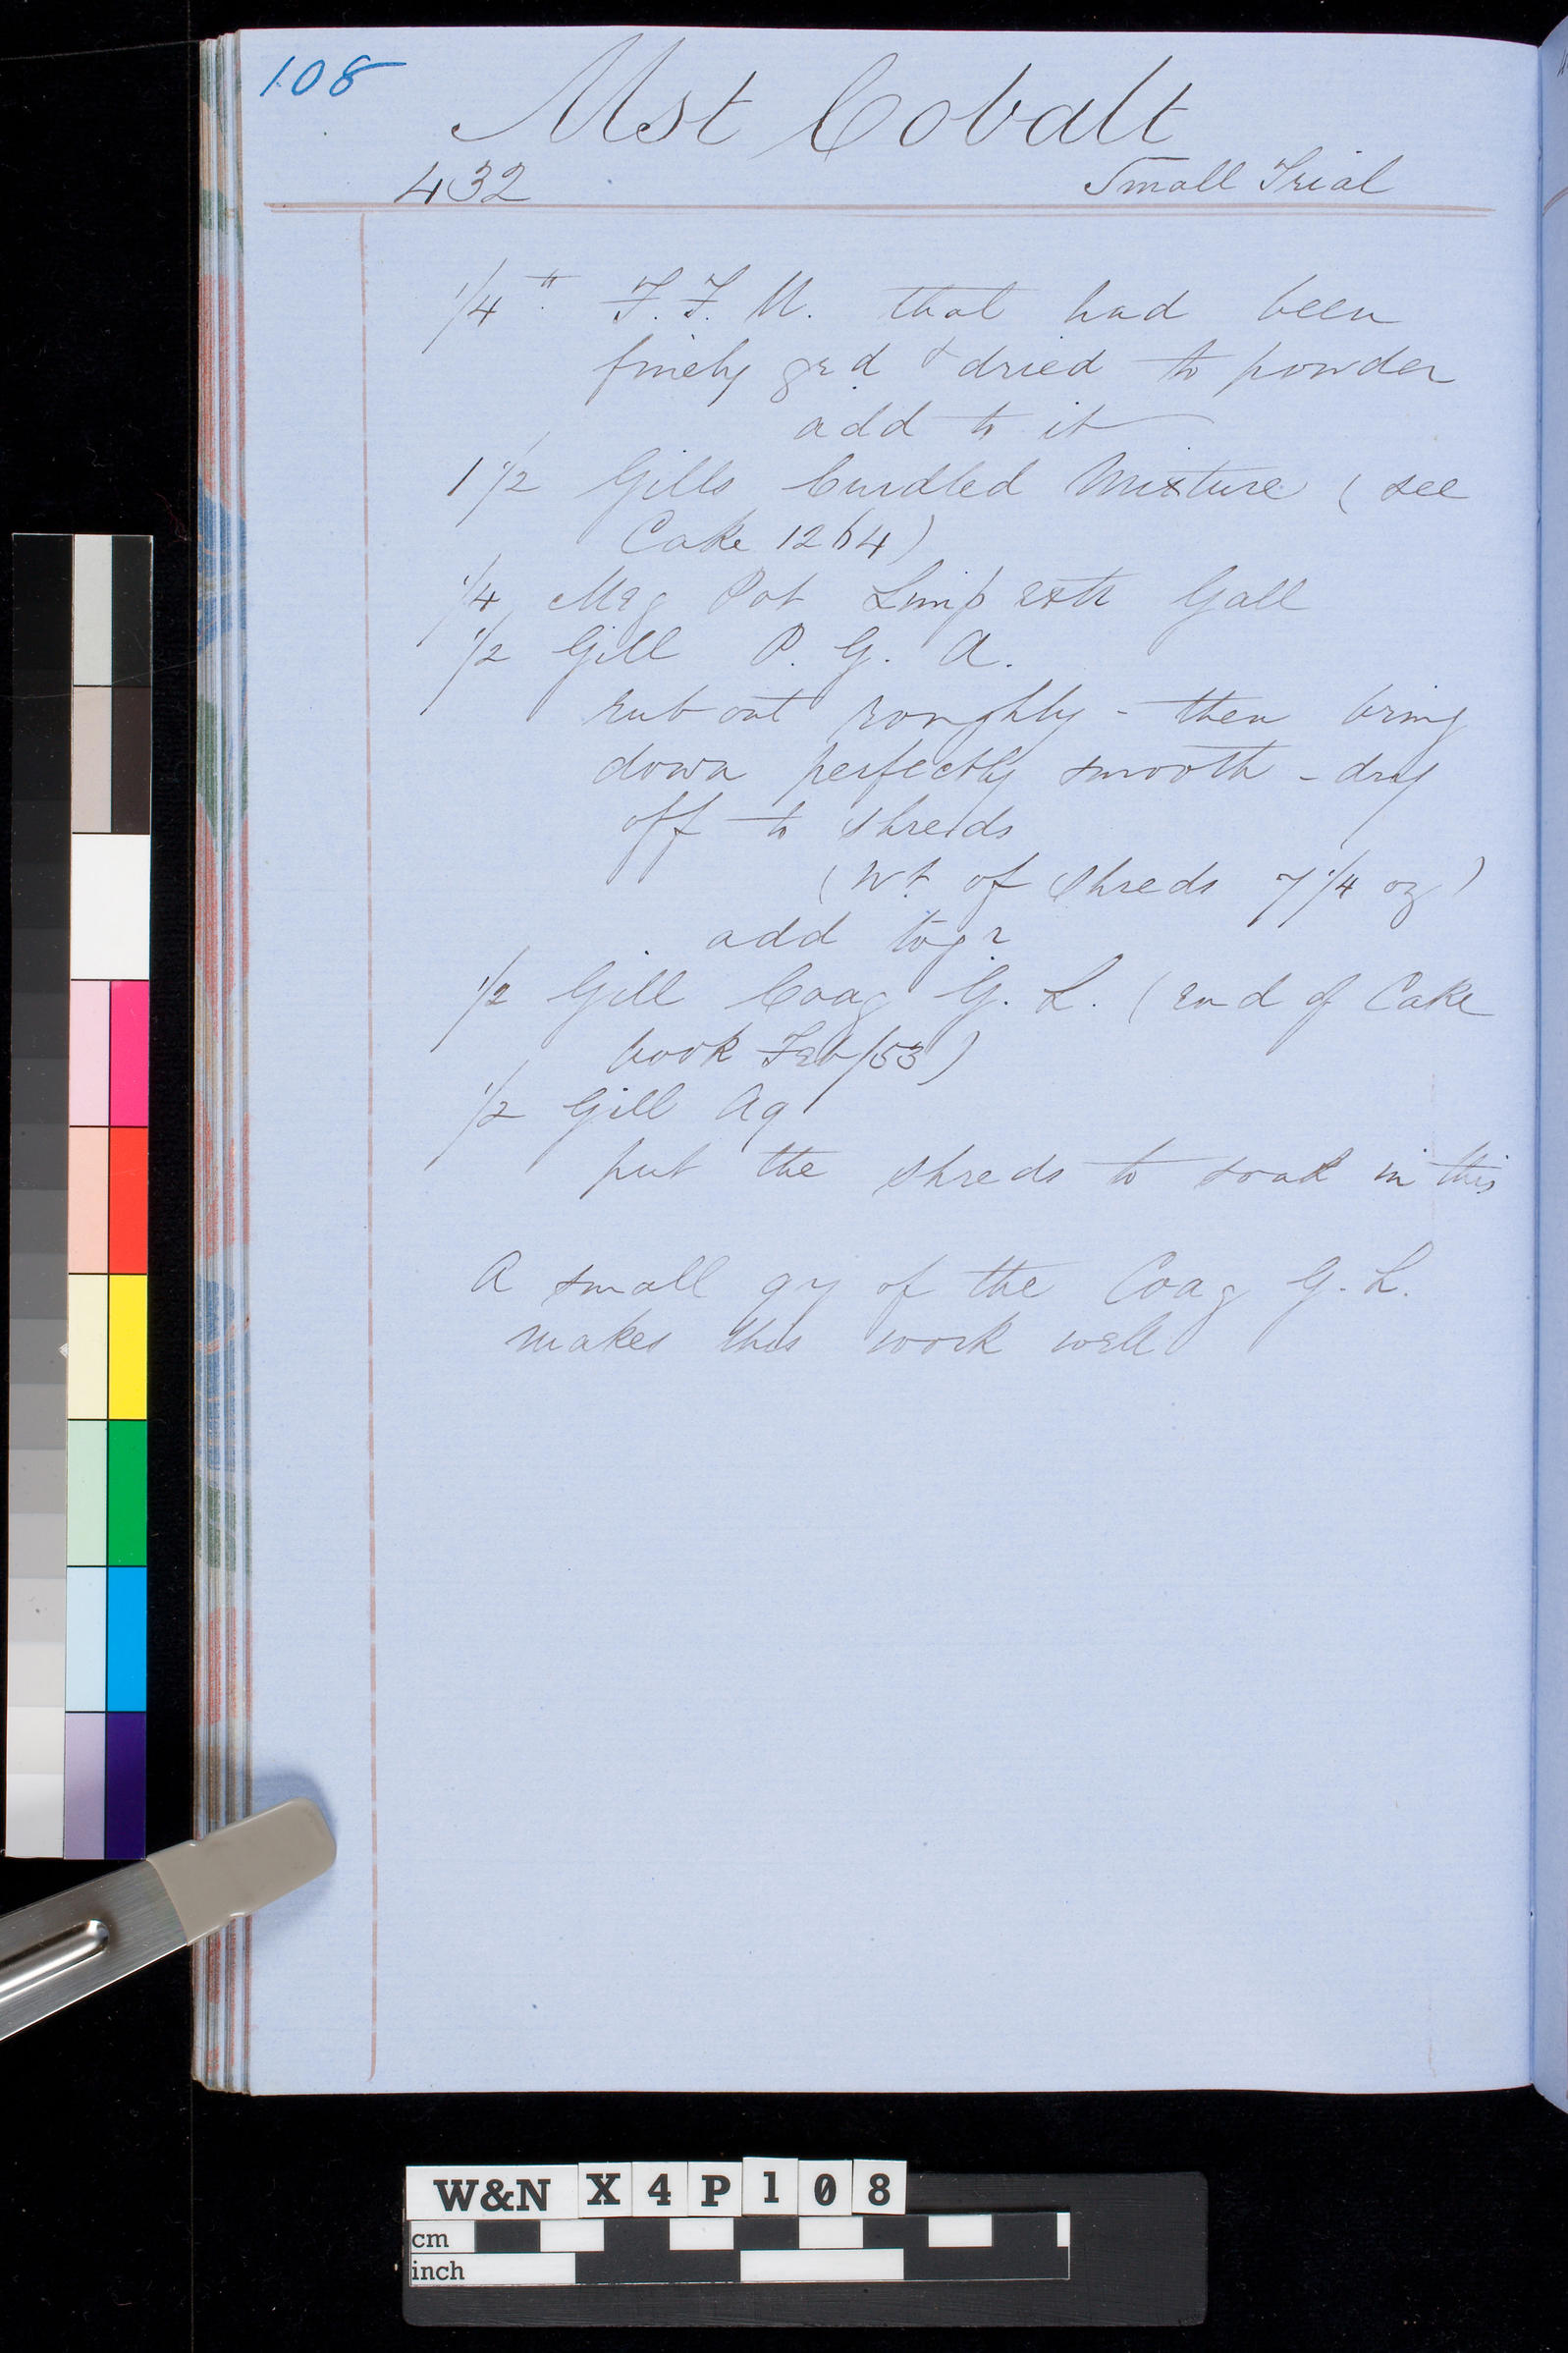 108
Mst Cobalt
432 Small Trial
1/4 " F. F. U. that had been
finely grd & dried to powder
add to it
1 1/2 Gills Curdled Mixture (see
Cake 1264)
1/4 Meg Pot Limp Gall
1/2 Gill P. G. A.
rub out roughly - then bring
down perfectly smooth - dry
off to shreds
(Wt of Shreds 7 1/4 oz)
add togr
1/2 Gill Coag G. L. (End of Cake
book Feb/53)
1/2 Gill Aq
put the shreds to soak in this
A small qy of the Coag G. L.
makes this work well
W&N X4P108
cm
inch